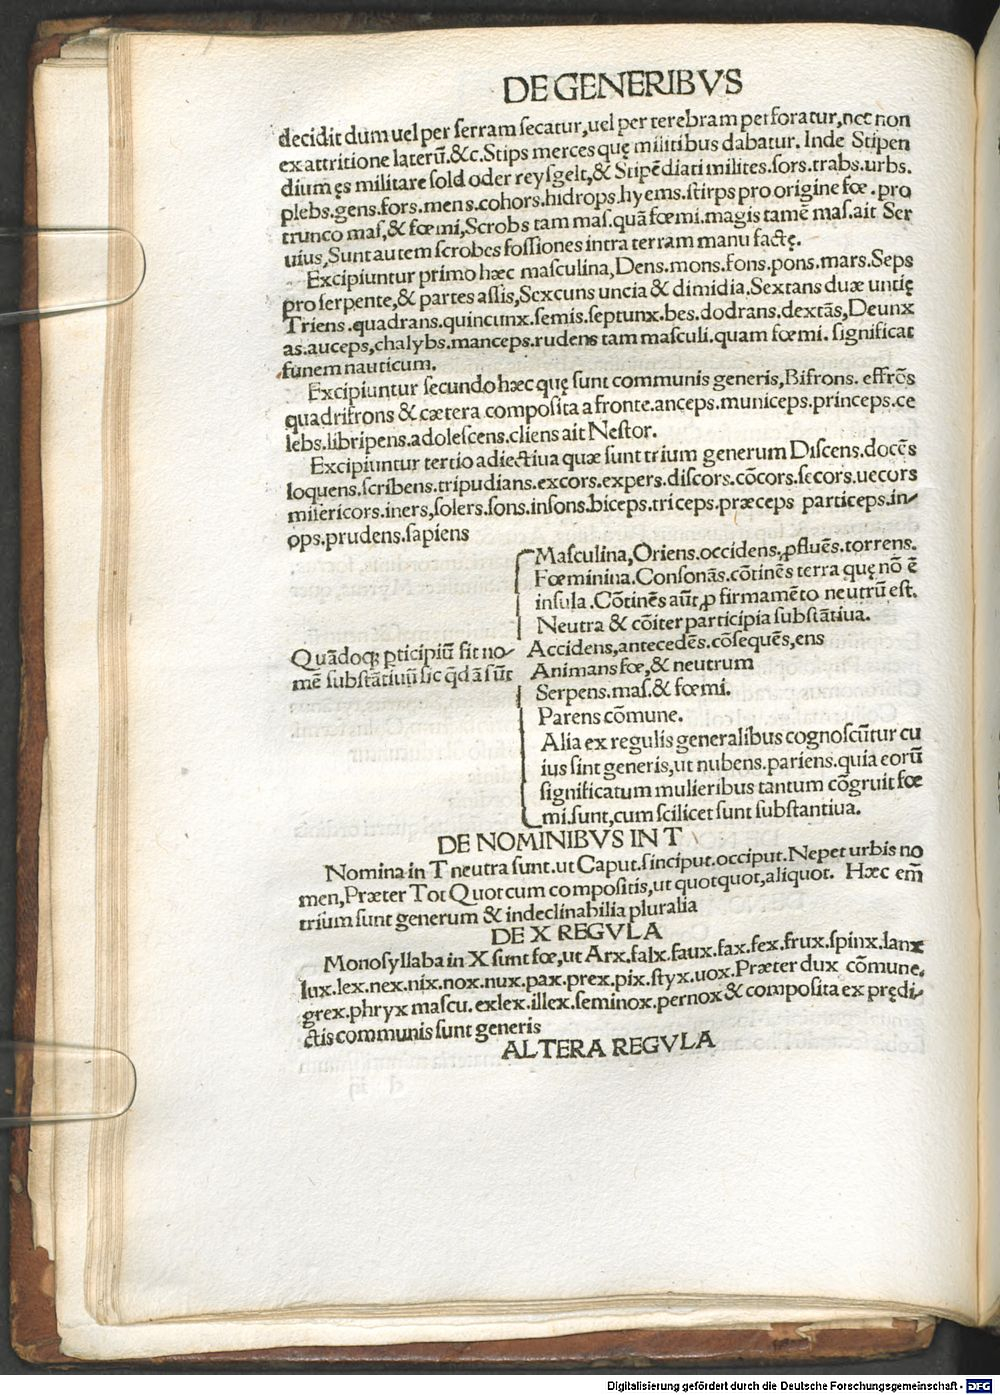 DE GENERIBVS
decidit dum uel per serram secatur, uel per terebram perforatur, nec non
ex attritione laterũ. &c. Stips merces quę militibus dabatur. Inde Stipen
dium ęs militare sold oder reysgelt, & Stipẽdiati milites. sors. trabs. urbs.
plebs. gens. fors. mens. cohors. hidrops. hyems. stirps pro origine fœ. pro
trunco mas, & fœmi, Scrobs tam mas. quã fœmi. magis tamẽ mas. ait Ser
uius, Sunt autem scrobes fossiones intra terram manu factę.
Excipiuntur primo hæc masculina, Dens. mons. fons. pons. mars. Seps
pro serpente, & partes assis, Sexcuns uncia & dimidia. Sextans duæ untię
Triens. quadrans. quincunx. semis. septunx. bes. dodrans. dextãs, Deunx
as. auceps, chalybs. manceps. rudens tam masculi. quam fœmi. significat
funem nauticum.
Excipiuntur secundo hæc quę sunt communis generis, Bifrons. effrõs
quadrifrons & cætera composita a fronte. anceps. municeps. princeps. ce
lebs. libripens. adolescens. cliens ait Nestor.
Excipiuntur tertio adiectiua quæ sunt trium generum Discens. docẽs
loquens. scribens. tripudians. excors. expers. discors. cõcors. secors. uecors
misericors. iners, solers. sons. insons. biceps. triceps. præceps particeps. in-
ops. prudens. sapiens
Masculina, Oriens. occidens. ꝓfluẽs. torrens.
Fœminina. Consonãs. cõtinẽs terra quę nõ ẽ
insula. Cõtinẽs aũt, ꝓ firmamẽto neutrũ est.
Neutra & cõiter participia substãtiua.
Accidens, antecedẽs. cõsequẽs, ens
Quãdoqꝫ ꝑticipiũ fit no-
Animans fœ, & neutrum
mẽ substãtiuũ sic q̃dã sũt
Serpens. mas. & fœmi.
Parens cõmune.
Alia ex regulis generalibus cognoscũtur cu
ius sint generis, ut nubens. pariens. quia eorũ
significatum mulieribus tantum cõgruit fœ
mi. sunt, cum scilicet sunt substantiua.
DE NOMINIBVS IN T
Nomina in T neutra sunt. ut Caput. sinciput. occiput. Nepet urbis no
men, Præter Tot Quot cum compositis, ut quotquot, aliquot. Hæc em̃
trium sunt generum & indeclinabilia pluralia
DE X REGVLA
Monosyllaba in X sunt fœ, ut Arx. falx. faux. fax. fex. frux. spinx. lanx
lux. lex. nex. nix. nox. nux. pax. prex. pix. styx. uox. Præter dux cõmune.
grex. phryx mascu. exlex. illex. seminox. pernox & composita ex prędi-
ctis communis sunt generis
ALTERA REGVLA
Digitalisierung gefördert durch die Deutsche Forschungsgemeinschaft - DFG